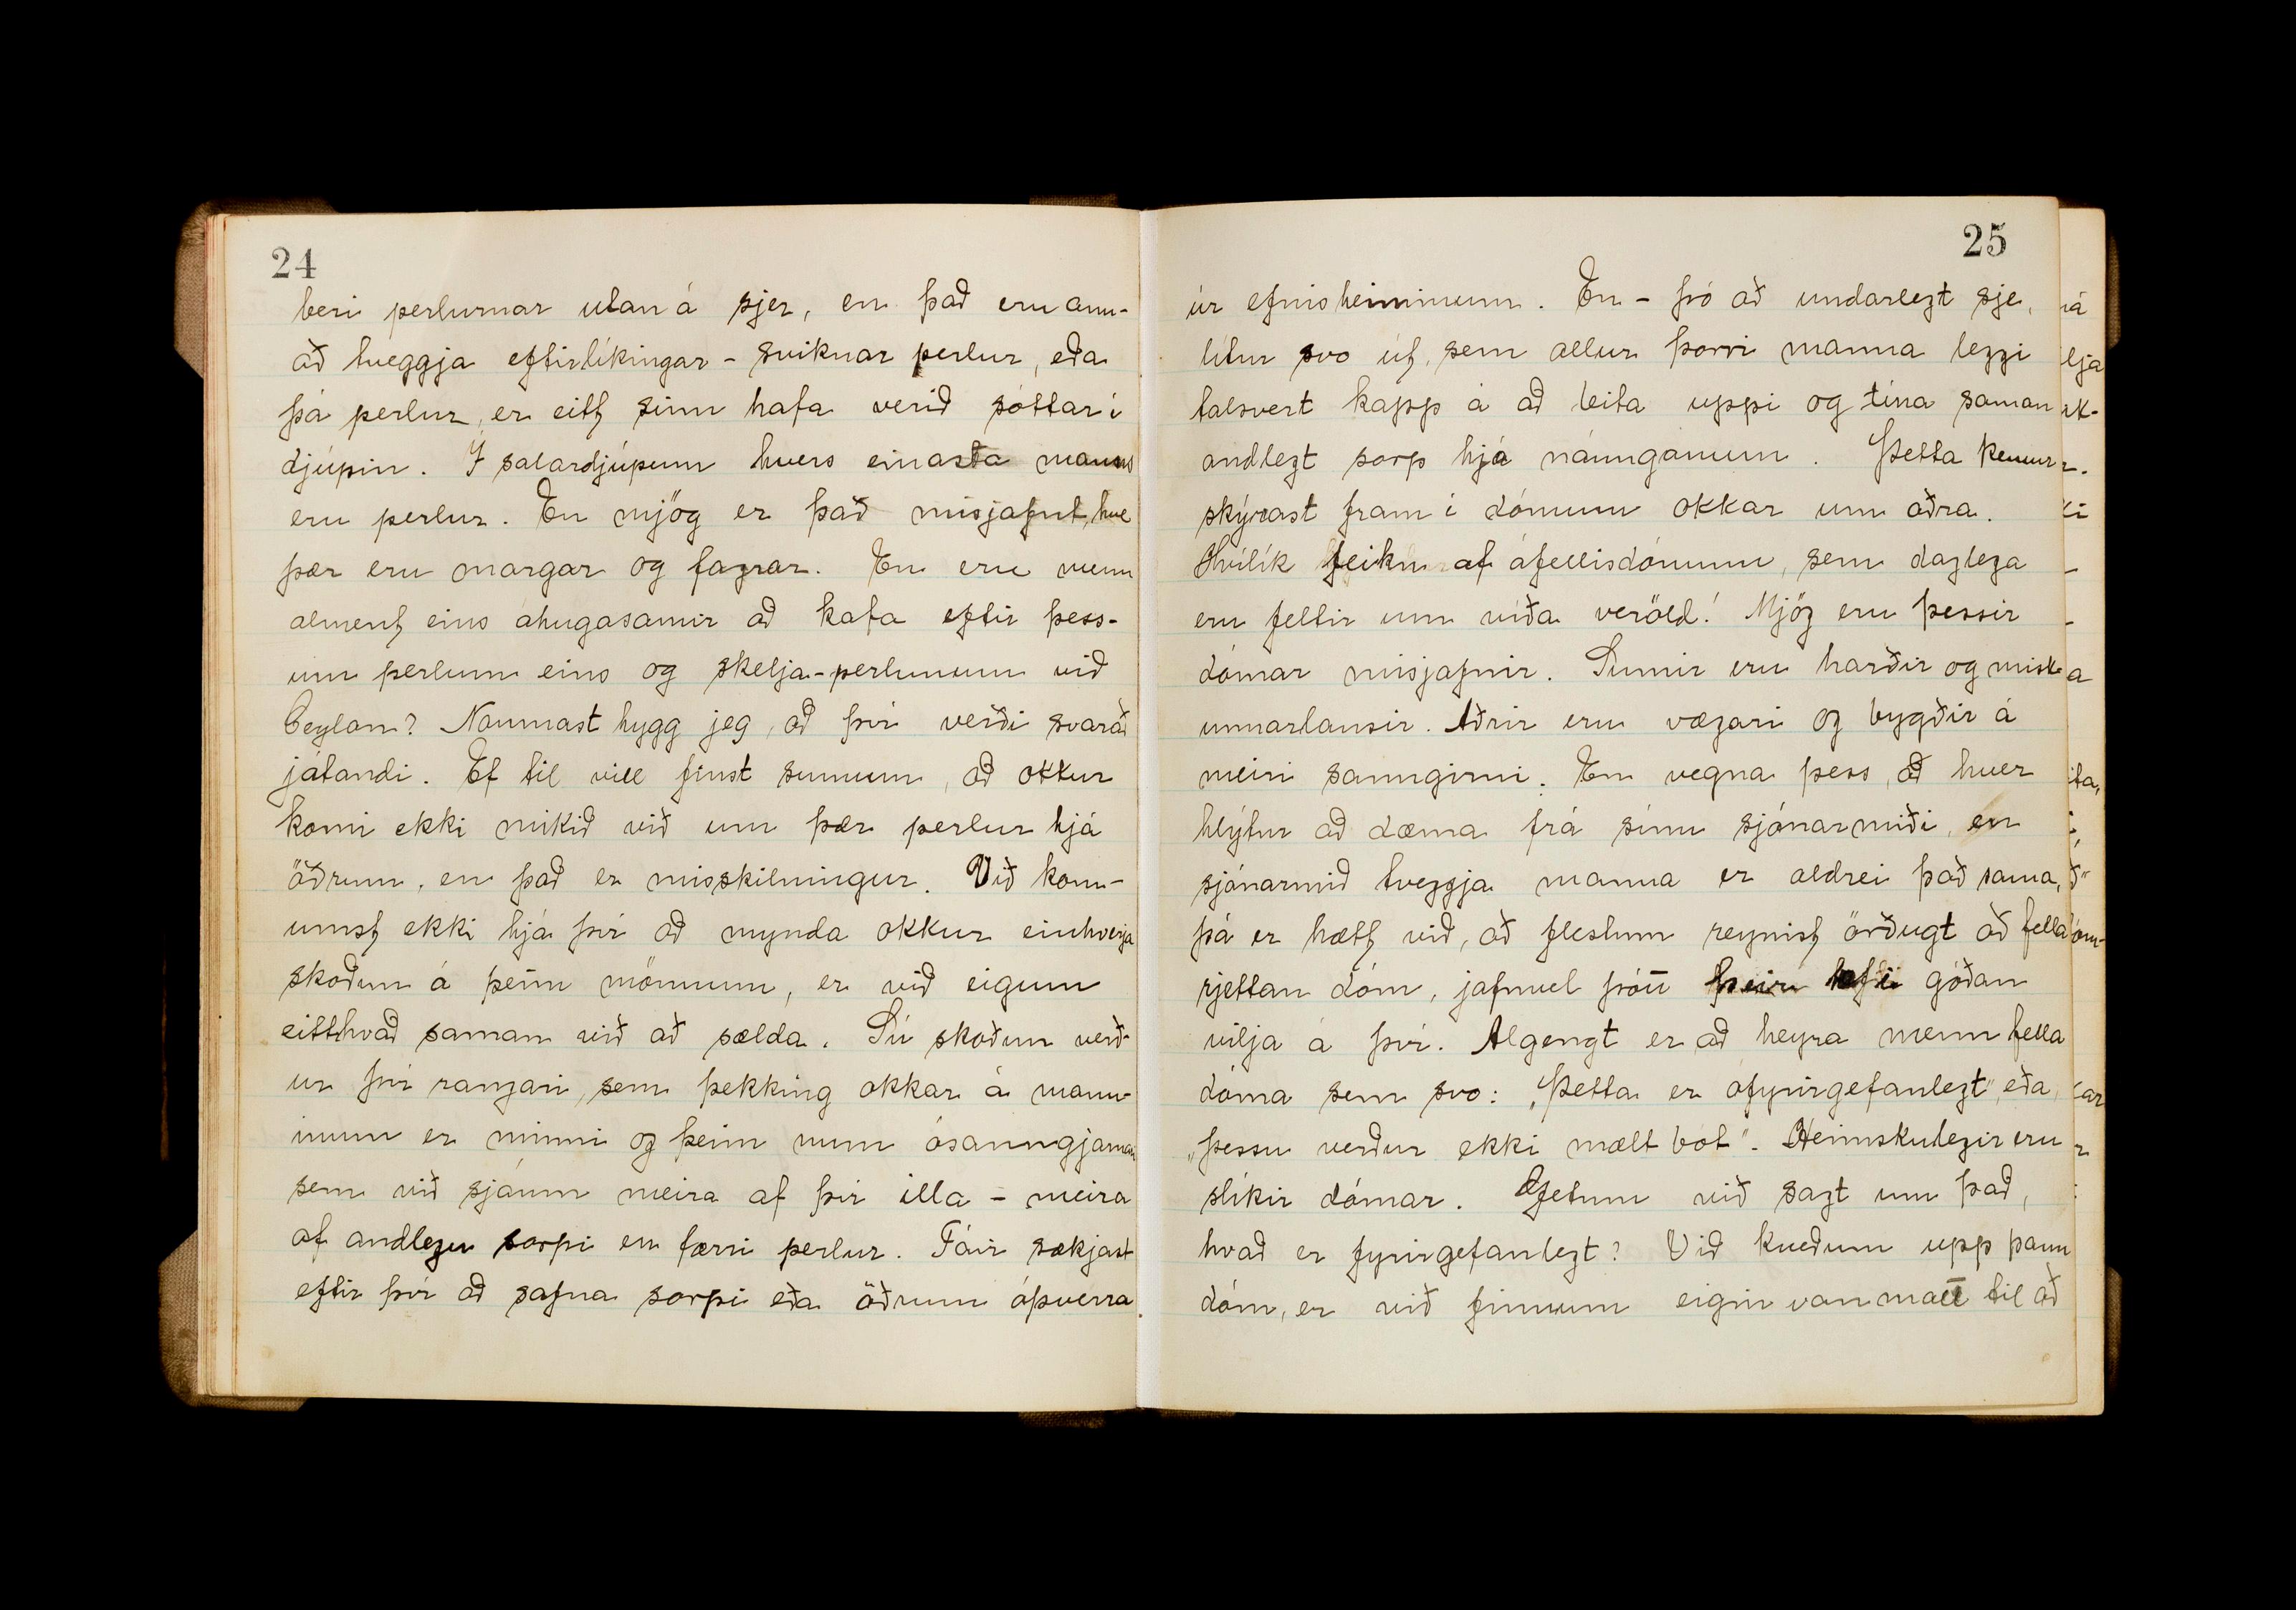 24
beri perlurnar utan á sjer, en það eru ann-
að tveggja eftirlíkingar - sviknar perlur, eða
þá perlur, er eitt sinn hafa verið sóttar í
djúpin. Í sálardjúpum hvers einasta manns
eru perlur. En mjög er það misjafnt, hve
þær eru margar og fagrar. En eru menn
alment eins áhugasamir að kafa eftir þess-
um perlum eins og skelja-perlunum við
Ceylon? Naumast hygg jeg, að því verði svarað
játandi. Ef til vill finst sumum, að okkur
komi ekki mikið við um þær perlur hjá
öðrum, en það er misskilningur. Við kom-
umst ekki hjá því að mynda okkur einhverja
skoðun á þeim mönnum, er við eigum
eitthvað saman við að sælda. Sú skoðun verð-
ur því rangari, sem þekking okkar á mönn-
unum er minni og þeim mun ósanngjarnari
sem við sjáum meira af því illa - meira
af andlegu sorpi en færri perlur. Fáir sækjast
eftir því að safna sorpi eða öðrum óþverra
25
úr efnisheiminum. En - þó að undarlegt sje,
lítur svo út, sem allur þorri manna leggi
talsvert kapp á að leita uppi og tína saman
andlegt sorp hjá náunganum. Þetta kemur
skýrast fram í dómum okkar um aðra.
Hvílík feikn af áfellisdómum, sem daglega
eru feltir um víða veröld! Mjög eru þessir
dómar misjafnir. Sumir eru harðir og misk-
unnarlausir. Aðrir eru vægari og bygðir á
meiri sanngirni. En vegna þess, að hver
hlýtur að dæma frá sínu sjónarmiði, en
sjónarmið tveggja manna er aldrei það sama,
þá er hætt við, að flestum reynist örðugt að fella
rjettan dóm, jafnvel þótt þeir hafi góðan
vilja á því. Algengt er að heyra menn fella
dóma sem svo: „Þetta er ófyrirgefanlegt", eða
„þessu verður ekki mælt bót". Heimskulegir eru
slíkir dómar. Getum við sagt um það,
hvað er fyrirgefanlegt? Við kveðum upp þann
dóm, er við finnum eigin vanmátt til að